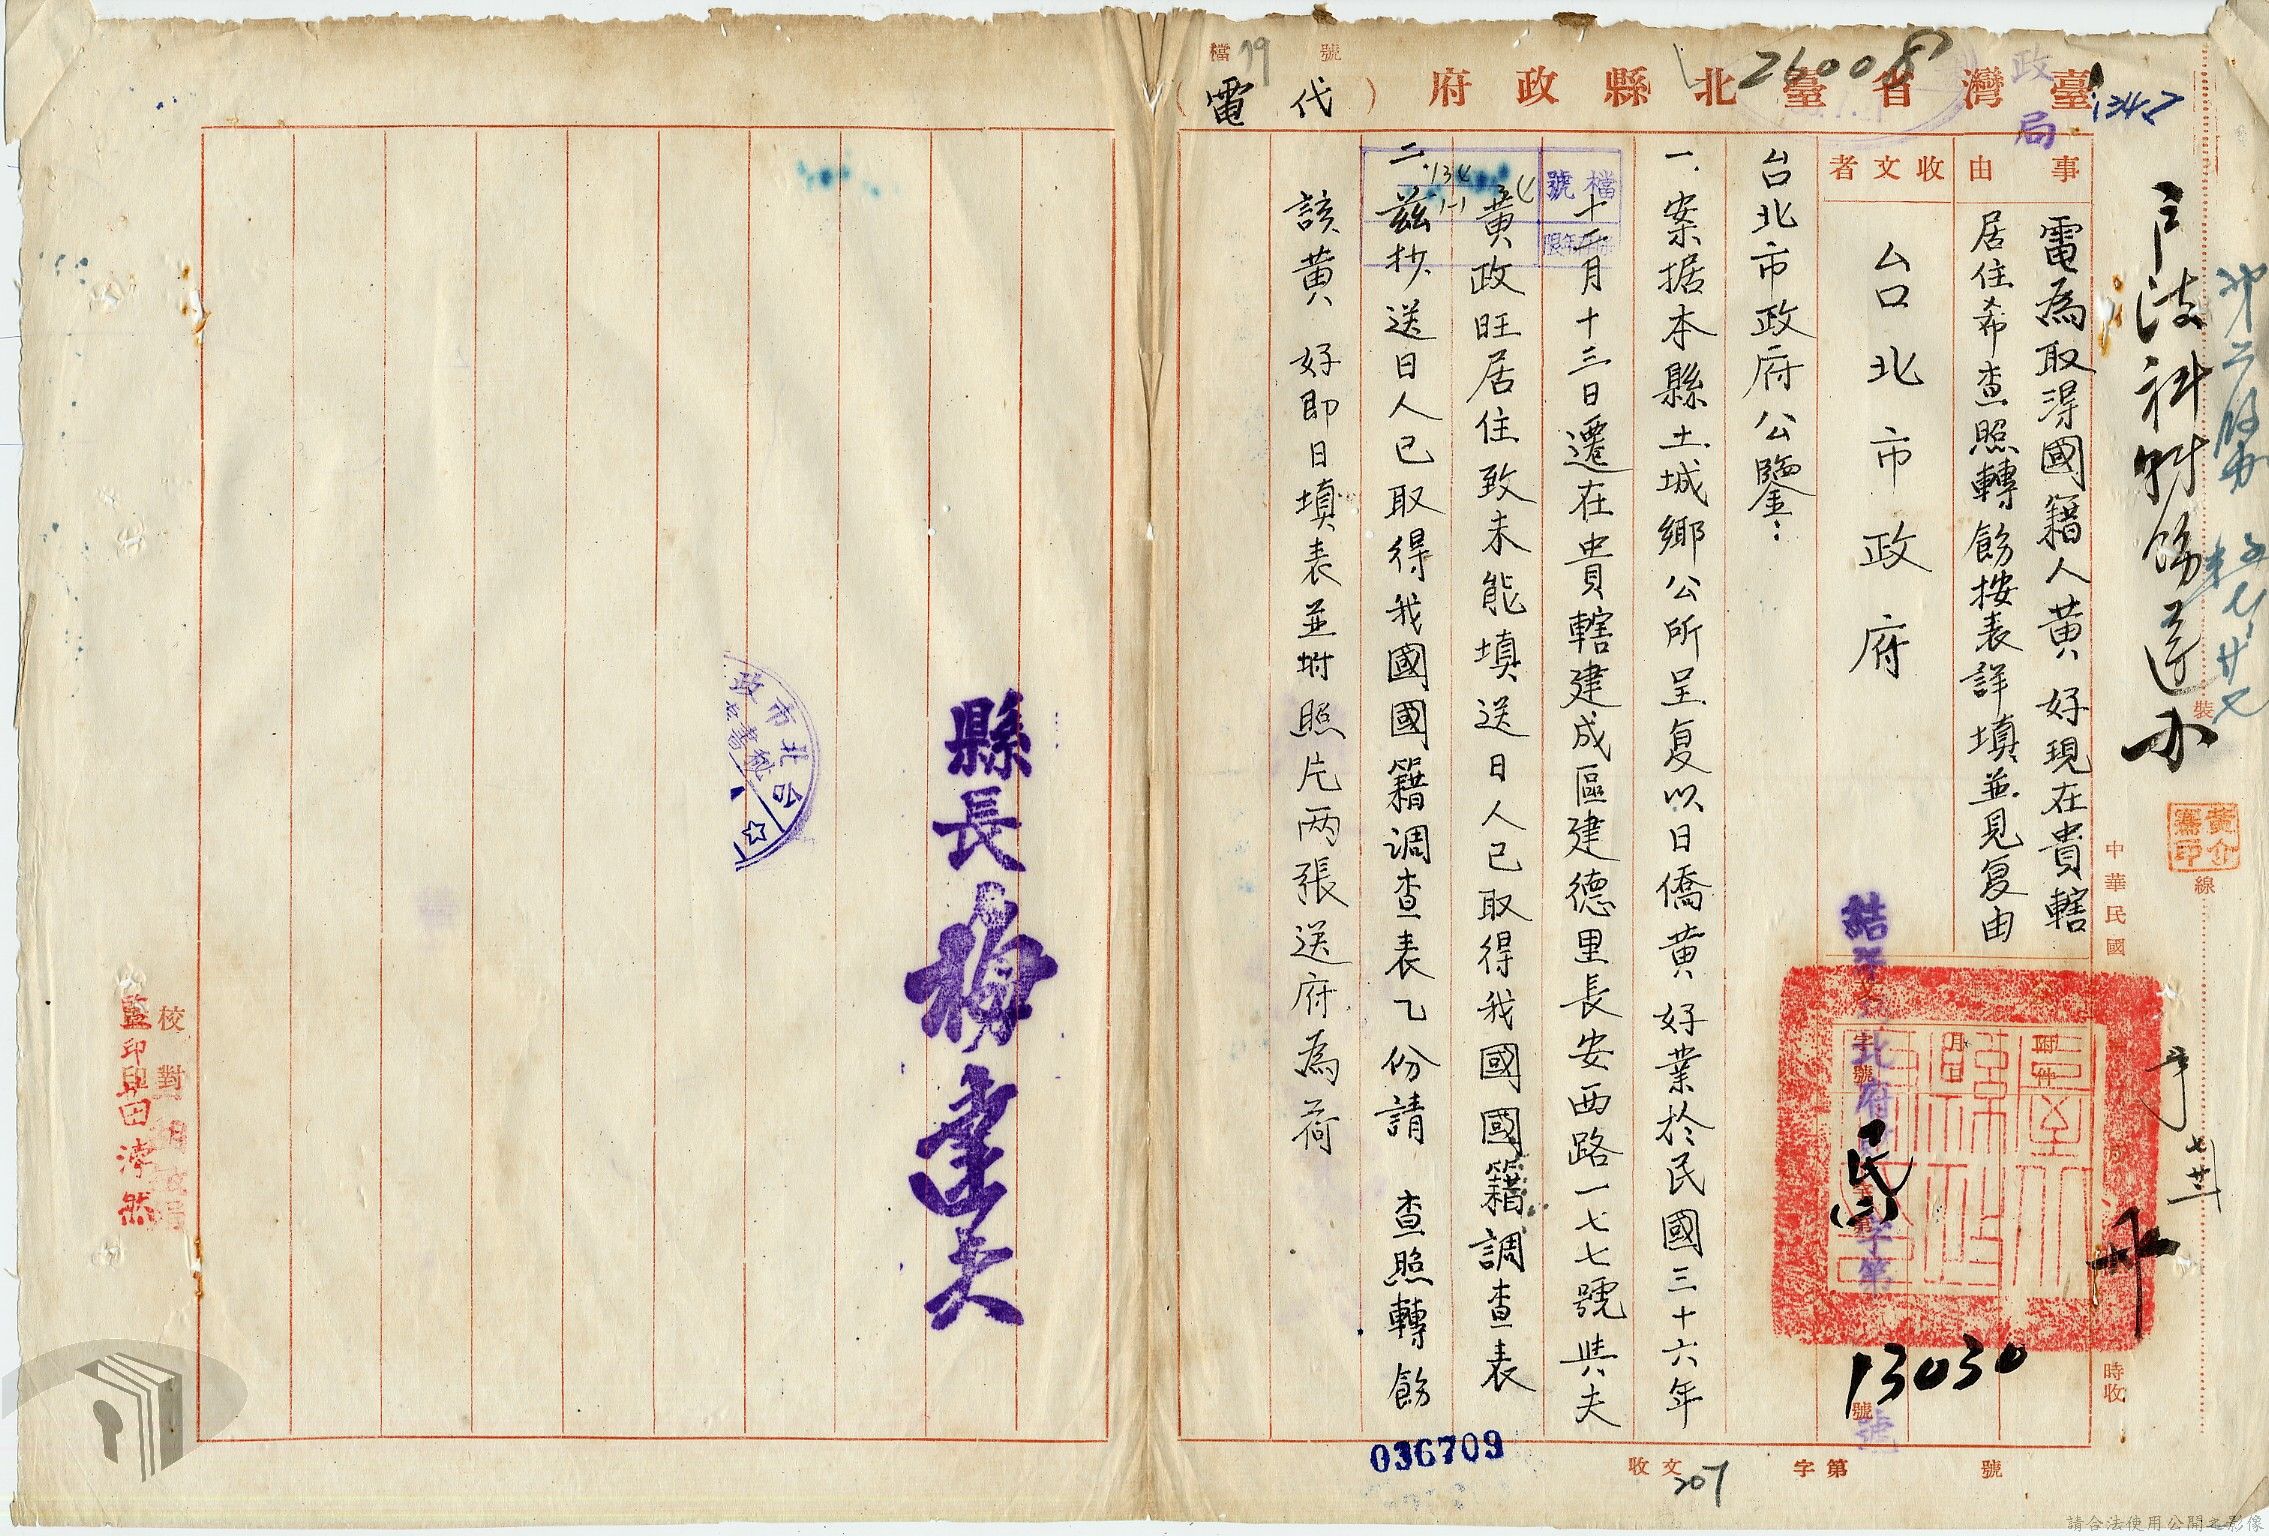 臺灣省臺北縣政府(代電)
檔號
19
26008
1347
政局
事由
電為取得國籍人黃 好現在貴轄
居住希查照轉飭按表詳填並見复由
收文者
台北市政府
附件
月日
字號
13030
號
中華民國
時收
裝
線
台北市政府公鑒：
一.案据本縣土城鄉公所呈复以日僑黃 好業於民國三十六年
十二月十三日遷在貴轄建成區建德里長安西路一七七號與夫
黃政旺居住致未能填送日人已取得我國國籍調查表
二.茲抄送日人已取得我國國籍調查表乙份請 查照轉飭
該黃 好即日填表並坿照片两張送府為荷
檔號
縣長梅達夫
校對
監印
036709
收文
207
字第
號
請合法使用公開之影像